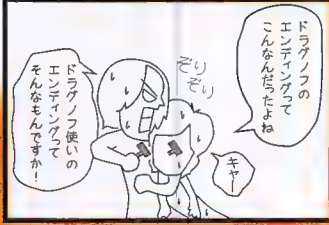 ドラグノフの
エンディングって
こんなんだったよね
ぞり
ぞり
キャー
ドラグノフ使いの
エンディングって
そんなもんですか!